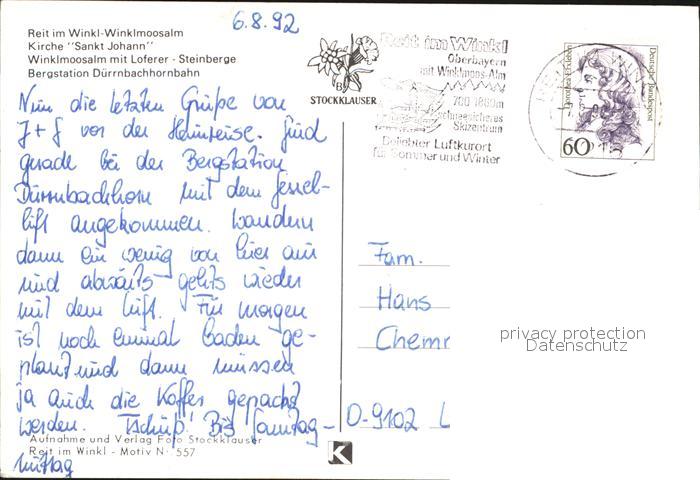 6.8.92
Reit im Winkl-Winklmoosalm
Kirche "Sankt Johann"
Winklmoosalm mit Loferer - Steinberge
Bergstation Dürrnbachhornbahn
STOCKKLAUSER
Reit im Winkl
Oberbayern
mit Winklmoos-Alm
700 1860m
schneesicheres
Skizentrum
Beliebter Luftkurort
für Sommer und Winter
Deutsche Bundespost
Dorothea Erxleben
60
Nun die letzten Grüße von
J+J vor der Heimreise. Sind
gerade bei der Bergstation
Dürrnbachhorn mit dem Sessel-
lift angekommen. Wandern
dann ein wenig von hier aus
und abwärts gehts wieder
mit dem Lift. Für morgen
ist noch einmal baden ge-
plant und dann müssen
ja auch die Koffer gepackt
werden. Tschüß! Bis Samstag-
mittag
Fam.
Hans
Chemn
D-9102 L
privacy protection
Datenschutz
Aufnahme und Verlag Foto Stockklauser
Reit im Winkl - Motiv Nr. 557
K